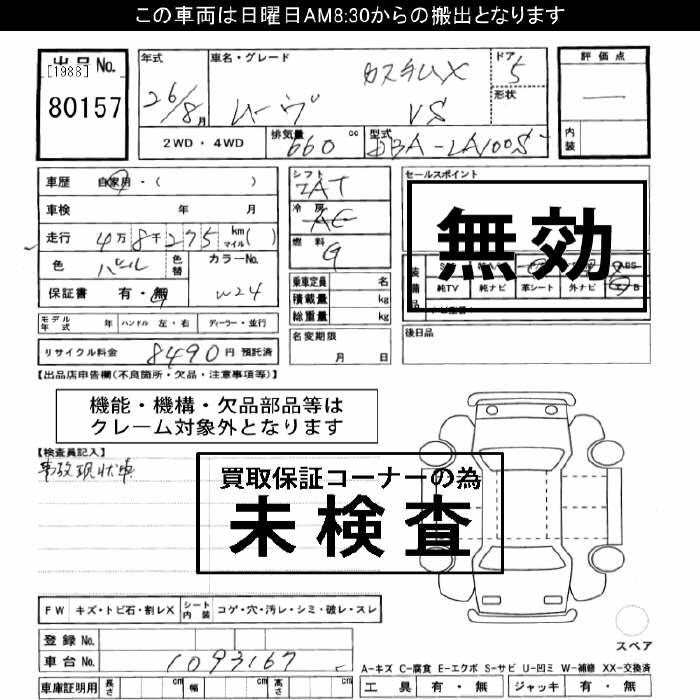 この車両は日曜日AM8:30からの搬出となります
出品No.
[1988]
80157
年式
26/8月
車名・グレード
ムーヴ カスタムX VS
ドア
5
形状
評価点
内装
2WD・4WD
排気量 660 cc
型式 DBA-LA100S
車歴 自家用・( )
車検 年 月
走行 4万8千275 km マイル( )
色 パール
色替
カラーNo. W24
保証書 有・無
シフト
冷房
燃料 G
乗車定員 名
積載量 kg
総重量 kg
名変期限
月 日
セールスポイント
無効
装備品
ABS
純TV 純ナビ 革シート 外ナビ
後日品
モデル年式 年 ハンドル 左・右 ディーラー・並行
リサイクル料金 8490円 預託済
【出品店申告欄(不良箇所・欠品・注意事項等)】
機能・機構・欠品部品等は
クレーム対象外となります
【検査員記入】
事故現状車
買取保証コーナーの為
未検査
FW キズ・トビ石・割レX シート内装 コゲ・穴・汚レ・シミ・破レ・スレ
登録No.
車台No. 1093167
車庫証明用 長さ cm 幅 cm 高さ cm
スペア
A-キズ C-腐食 E-エクボ S-サビ U-凹ミ W-補修 XX-交換済
工具 有・無 ジャッキ 有・無